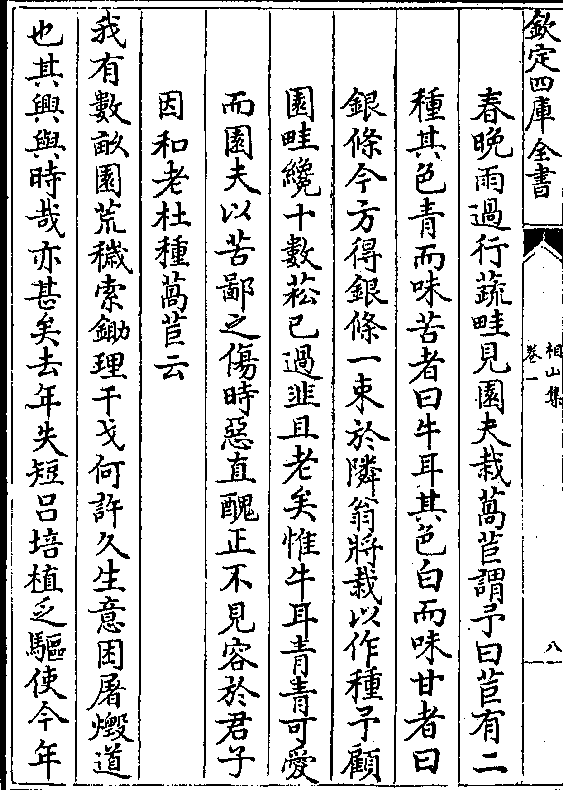 欽定四庫全書
相山集
卷一
八
春晚雨過行蔬畦見園夫栽萵苣謂予曰苣有二
種其色青而味苦者曰牛耳其色白而味甘者曰
銀條今方得銀條一束於隣翁將栽以作種予顧
園畦纔十數菘已過韭且老矣惟牛耳青青可愛
而園夫以苦鄙之傷時惡直醜正不見容於君子
因和老杜種萵苣云
我有數畝園荒穢索鋤理干戈何許久生意困屠燬道
也其興與時哉亦甚矣去年失短吕培植乏驅使今年